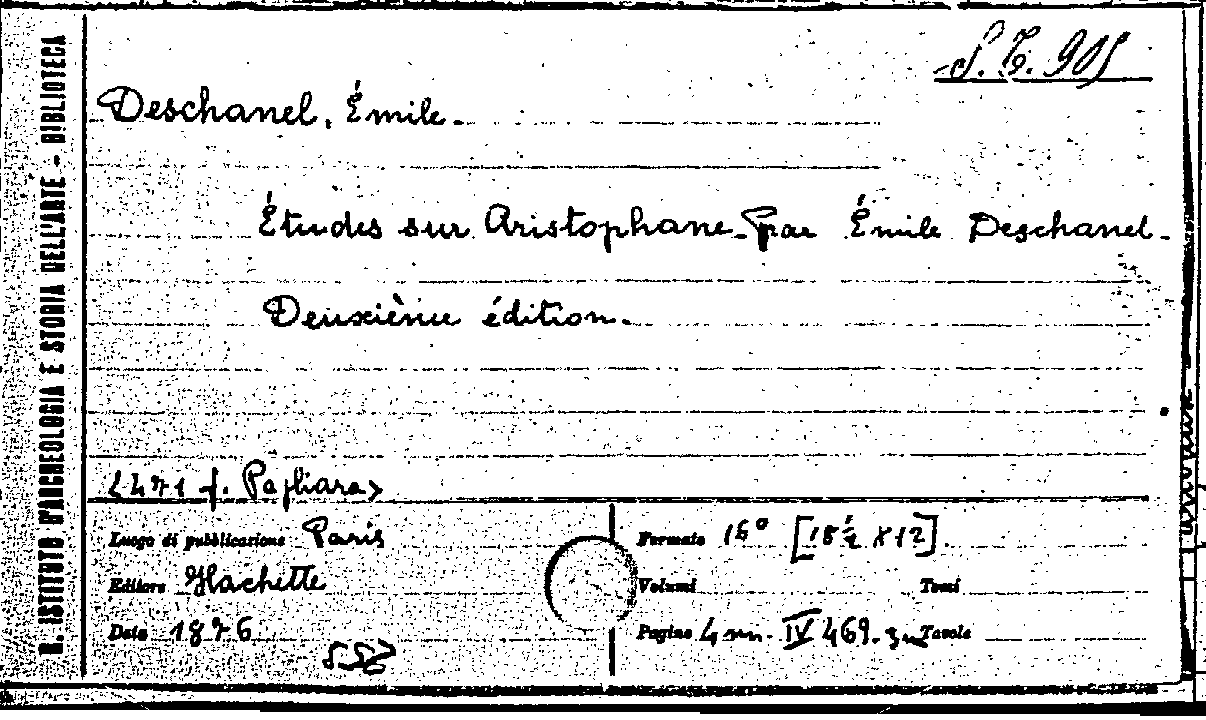 S. T. 905
R. ISTITUTO D'ARCHEOLOGIA E STORIA DELL'ARTE - BIBLIOTECA
Deschanel, Émile.
Études sur Aristophane. Par Émile Deschanel.
Deuxième édition.
f. Pagliara>
Luogo di pubblicazione Paris
Formato 16° [18½ x 12].
Editore Hachette
Volumi
Tomi
Data 1876
Pagine 4 nn. IV 469.
Tavole